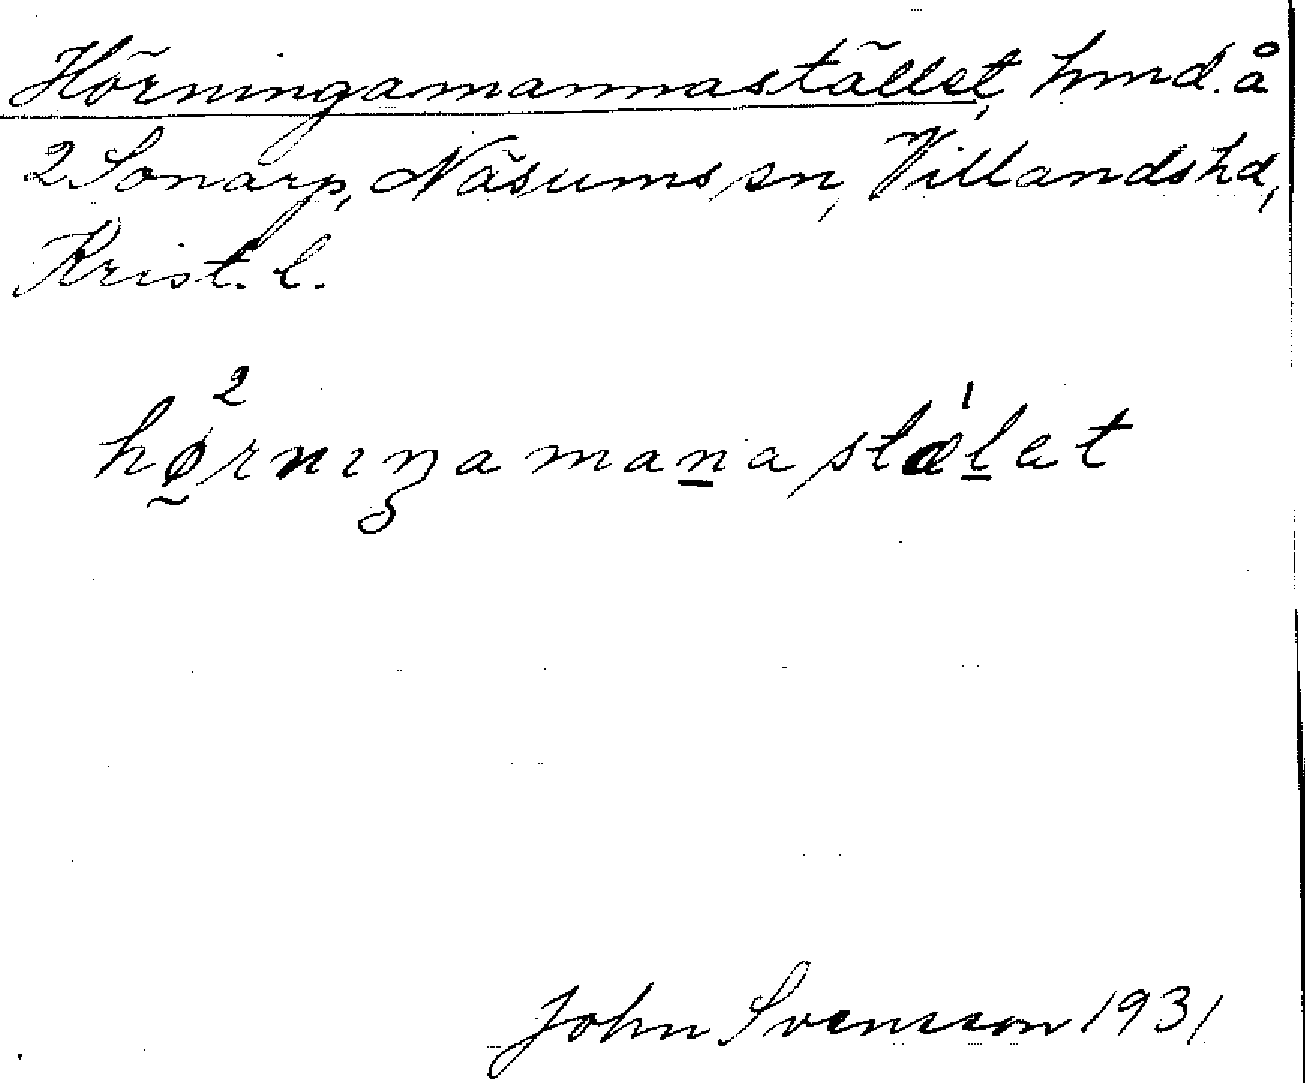 Hörningamannastället, hmd. å
2 Sonarp, Näsums sn, Villands hd,
Krist. l.
hø̰²rnıŋaman̲astæ¹l̲et
John Svensson 1931